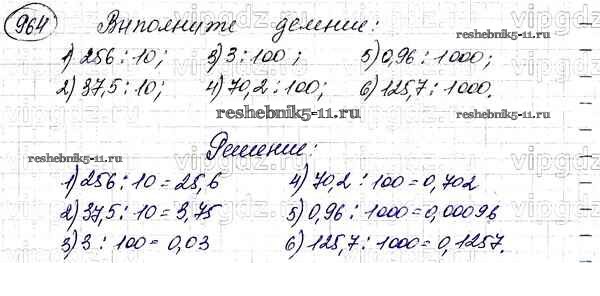 964 Выполните деление:
1) 256 : 10; 3) 3 : 100; 5) 0,96 : 1000;
2) 37,5 : 10; 4) 70,2 : 100; 6) 125,7 : 1000.
Решение:
1) 256 : 10 = 25,6 4) 70,2 : 100 = 0,702
2) 37,5 : 10 = 3,75 5) 0,96 : 1000 = 0,00096
3) 3 : 100 = 0,03 6) 125,7 : 1000 = 0,1257.
reshebnik5-11.ru
reshebnik5-11.ru
reshebnik5-11.ru
reshebnik5-11.ru
vipgdz.ru